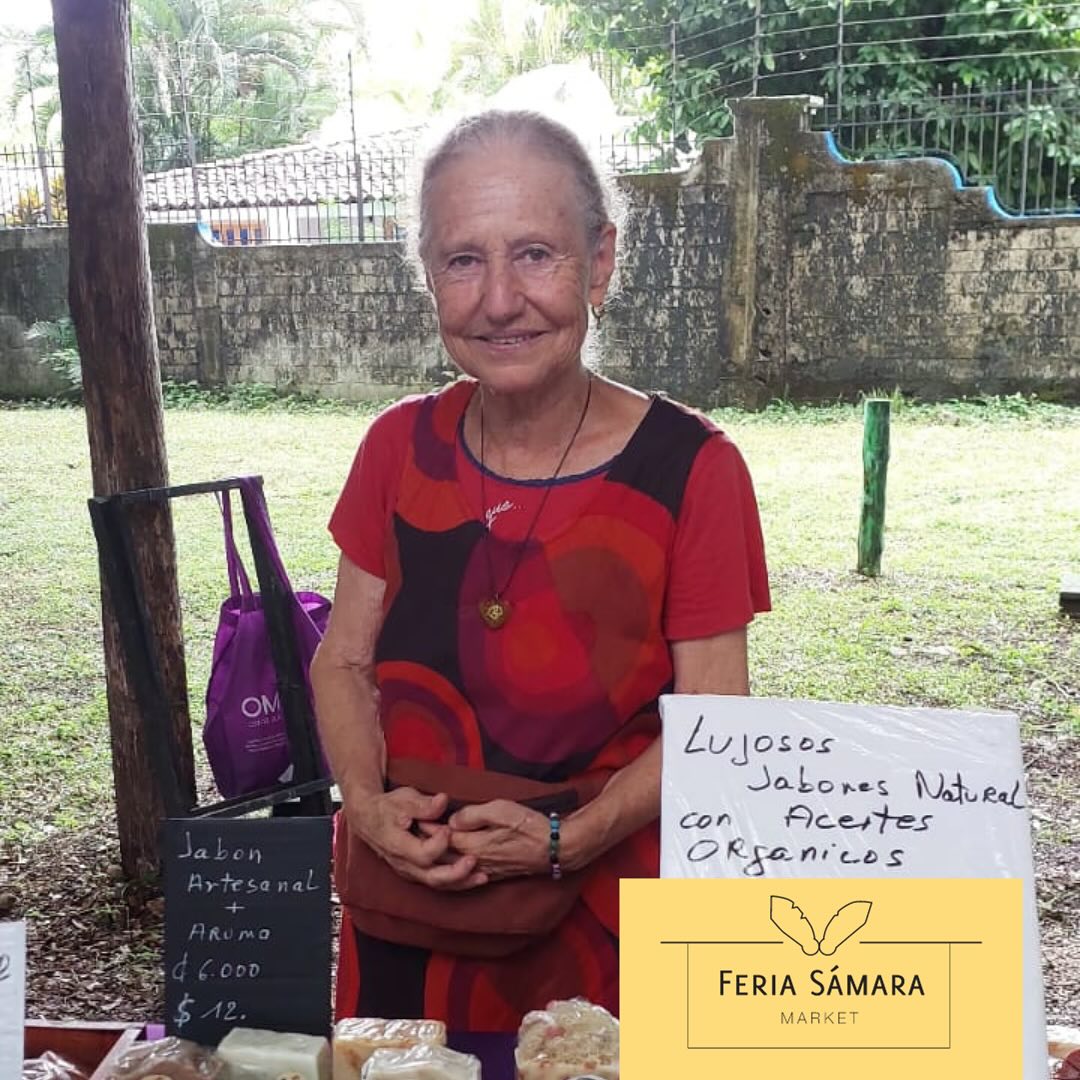 que..
OM
Lujosos
Jabones Natural
con Aceites
ORganicos
Jabon
Artesanal
+
Aroma
₡ 6.000
$ 12.
FERIA SÁMARA
MARKET